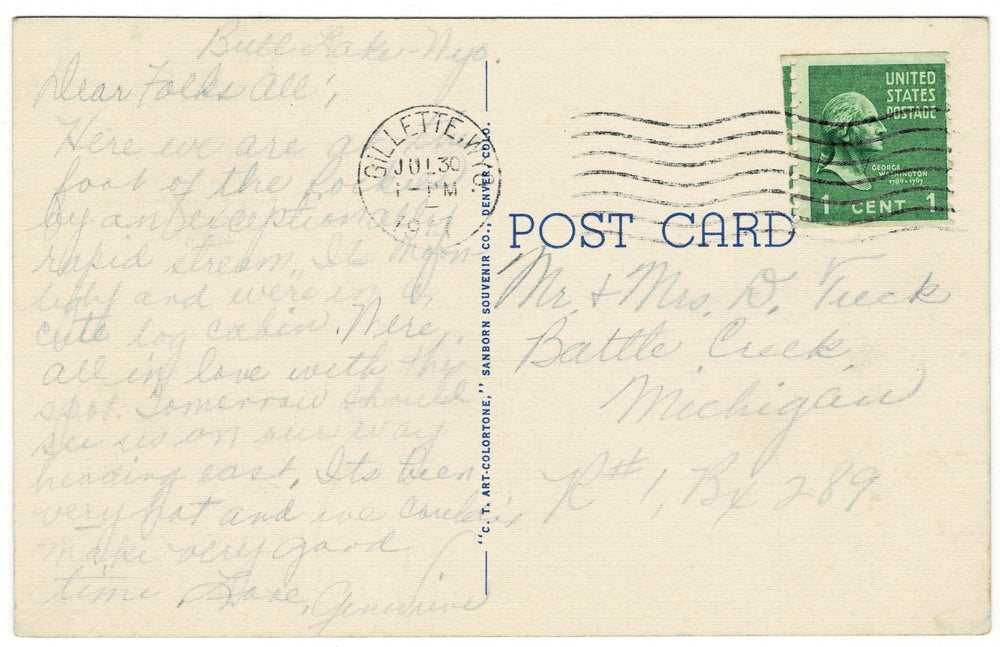 Bull Lake - Wyo.
Dear Folks all;
Here we are at the
foot of the
by an exceptionally
rapid stream, Its moon-
light and were in a
cute log cabin. Were
all in love with this
spot. Tomorrow should
see us on our way
heading east. Its been
very hot and we couldn't
make very good
time. Love, Genevieve
GILLETTE, WYO.
JUL 30
PM
"C. T. ART-COLORTONE," SANBORN SOUVENIR CO., DENVER, COLO.
UNITED
STATES
POSTAGE
GEORGE
WASHINGTON
1789-1797
1 CENT 1
POST CARD
Mr. & Mrs. D. Tieck
Battle Creek
Michigan
R# 1, Bx 289